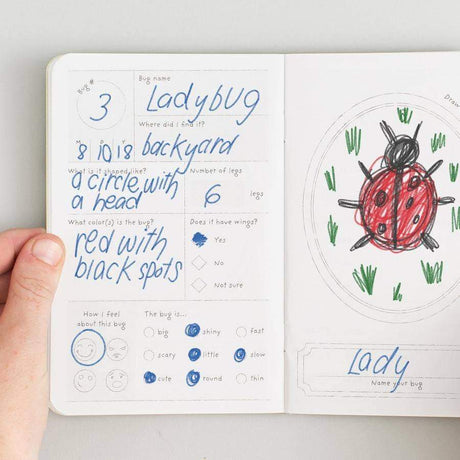 Bug #
3
Bug name
Ladybug
Where did I find it?
8 10 18 backyard
What is it shaped like?
a circle with
a head
Number of legs
6 legs
What color(s) is the bug?
red with
black spots
Does it have wings?
Yes
No
Not sure
How I feel
about this bug
The bug is...
big shiny fast
scary little slow
cute round thin
Draw
Lady
Name your bug